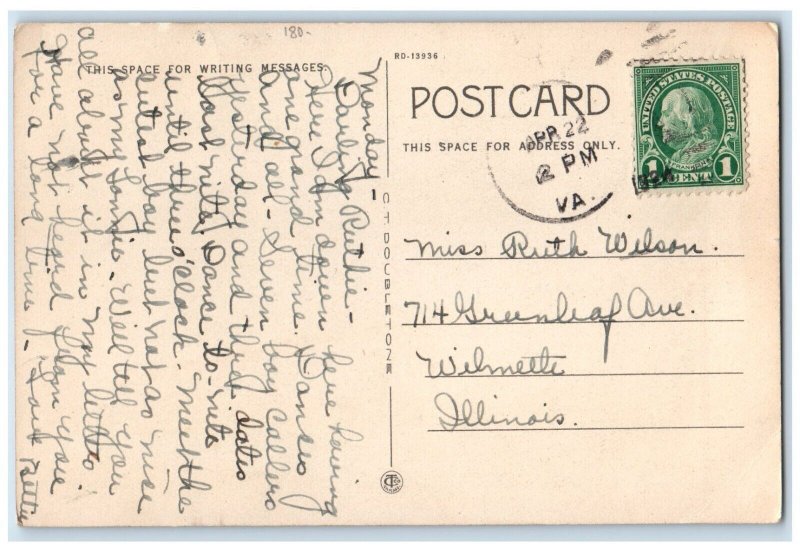 180-
THIS SPACE FOR WRITING MESSAGES.
Monday -
Darling Ruthie -
Here I am down here having
one grand time. Dances
and all - Seven boy callers
yesterday and three dates
last nite. Dance to-nite
until three o'clock. Met the
cutest boy but not as nice
as my Lonnie - Will tell you
all about it in my letter
Have not heard from you
for a long time - Love
Bettie
C.T. DOUBLETONE
RD-13936
POST CARD
THIS SPACE FOR ADDRESS ONLY.
APR 22
2 PM
VA.
UNITED STATES POSTAGE
FRANKLIN
1 CENT 1
Miss Ruth Wilson.
714 Greenleaf Ave.
Wilmette
Illinois.